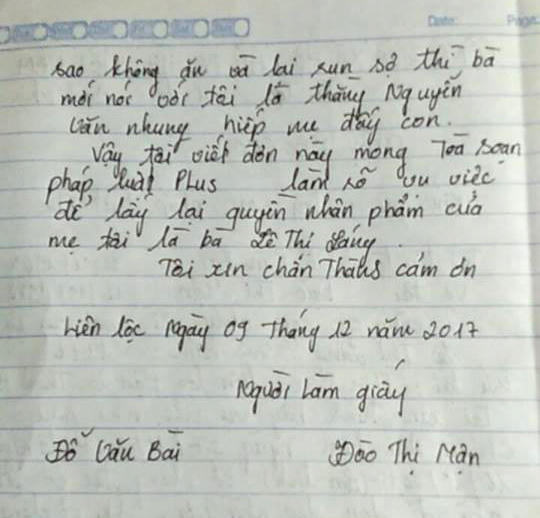 Date: Page:
sao không ăn và lai run sợ thì bà
mới nói với tôi là thằng Nguyễn
Văn nhung hiếp mẹ đấy con.
Vậy tôi viết đơn này mong Toà soạn
pháp luật Plus làm rõ vu việc
để lấy lại quyền nhân phẩm của
mẹ tôi là bà Lê Thị Sáng.
Tôi xin chân Thành cám ơn
Liên lộc ngày 09 tháng 12 năm 2017
Người Làm giấy
Đỗ Văn Bai Đào Thị Mận